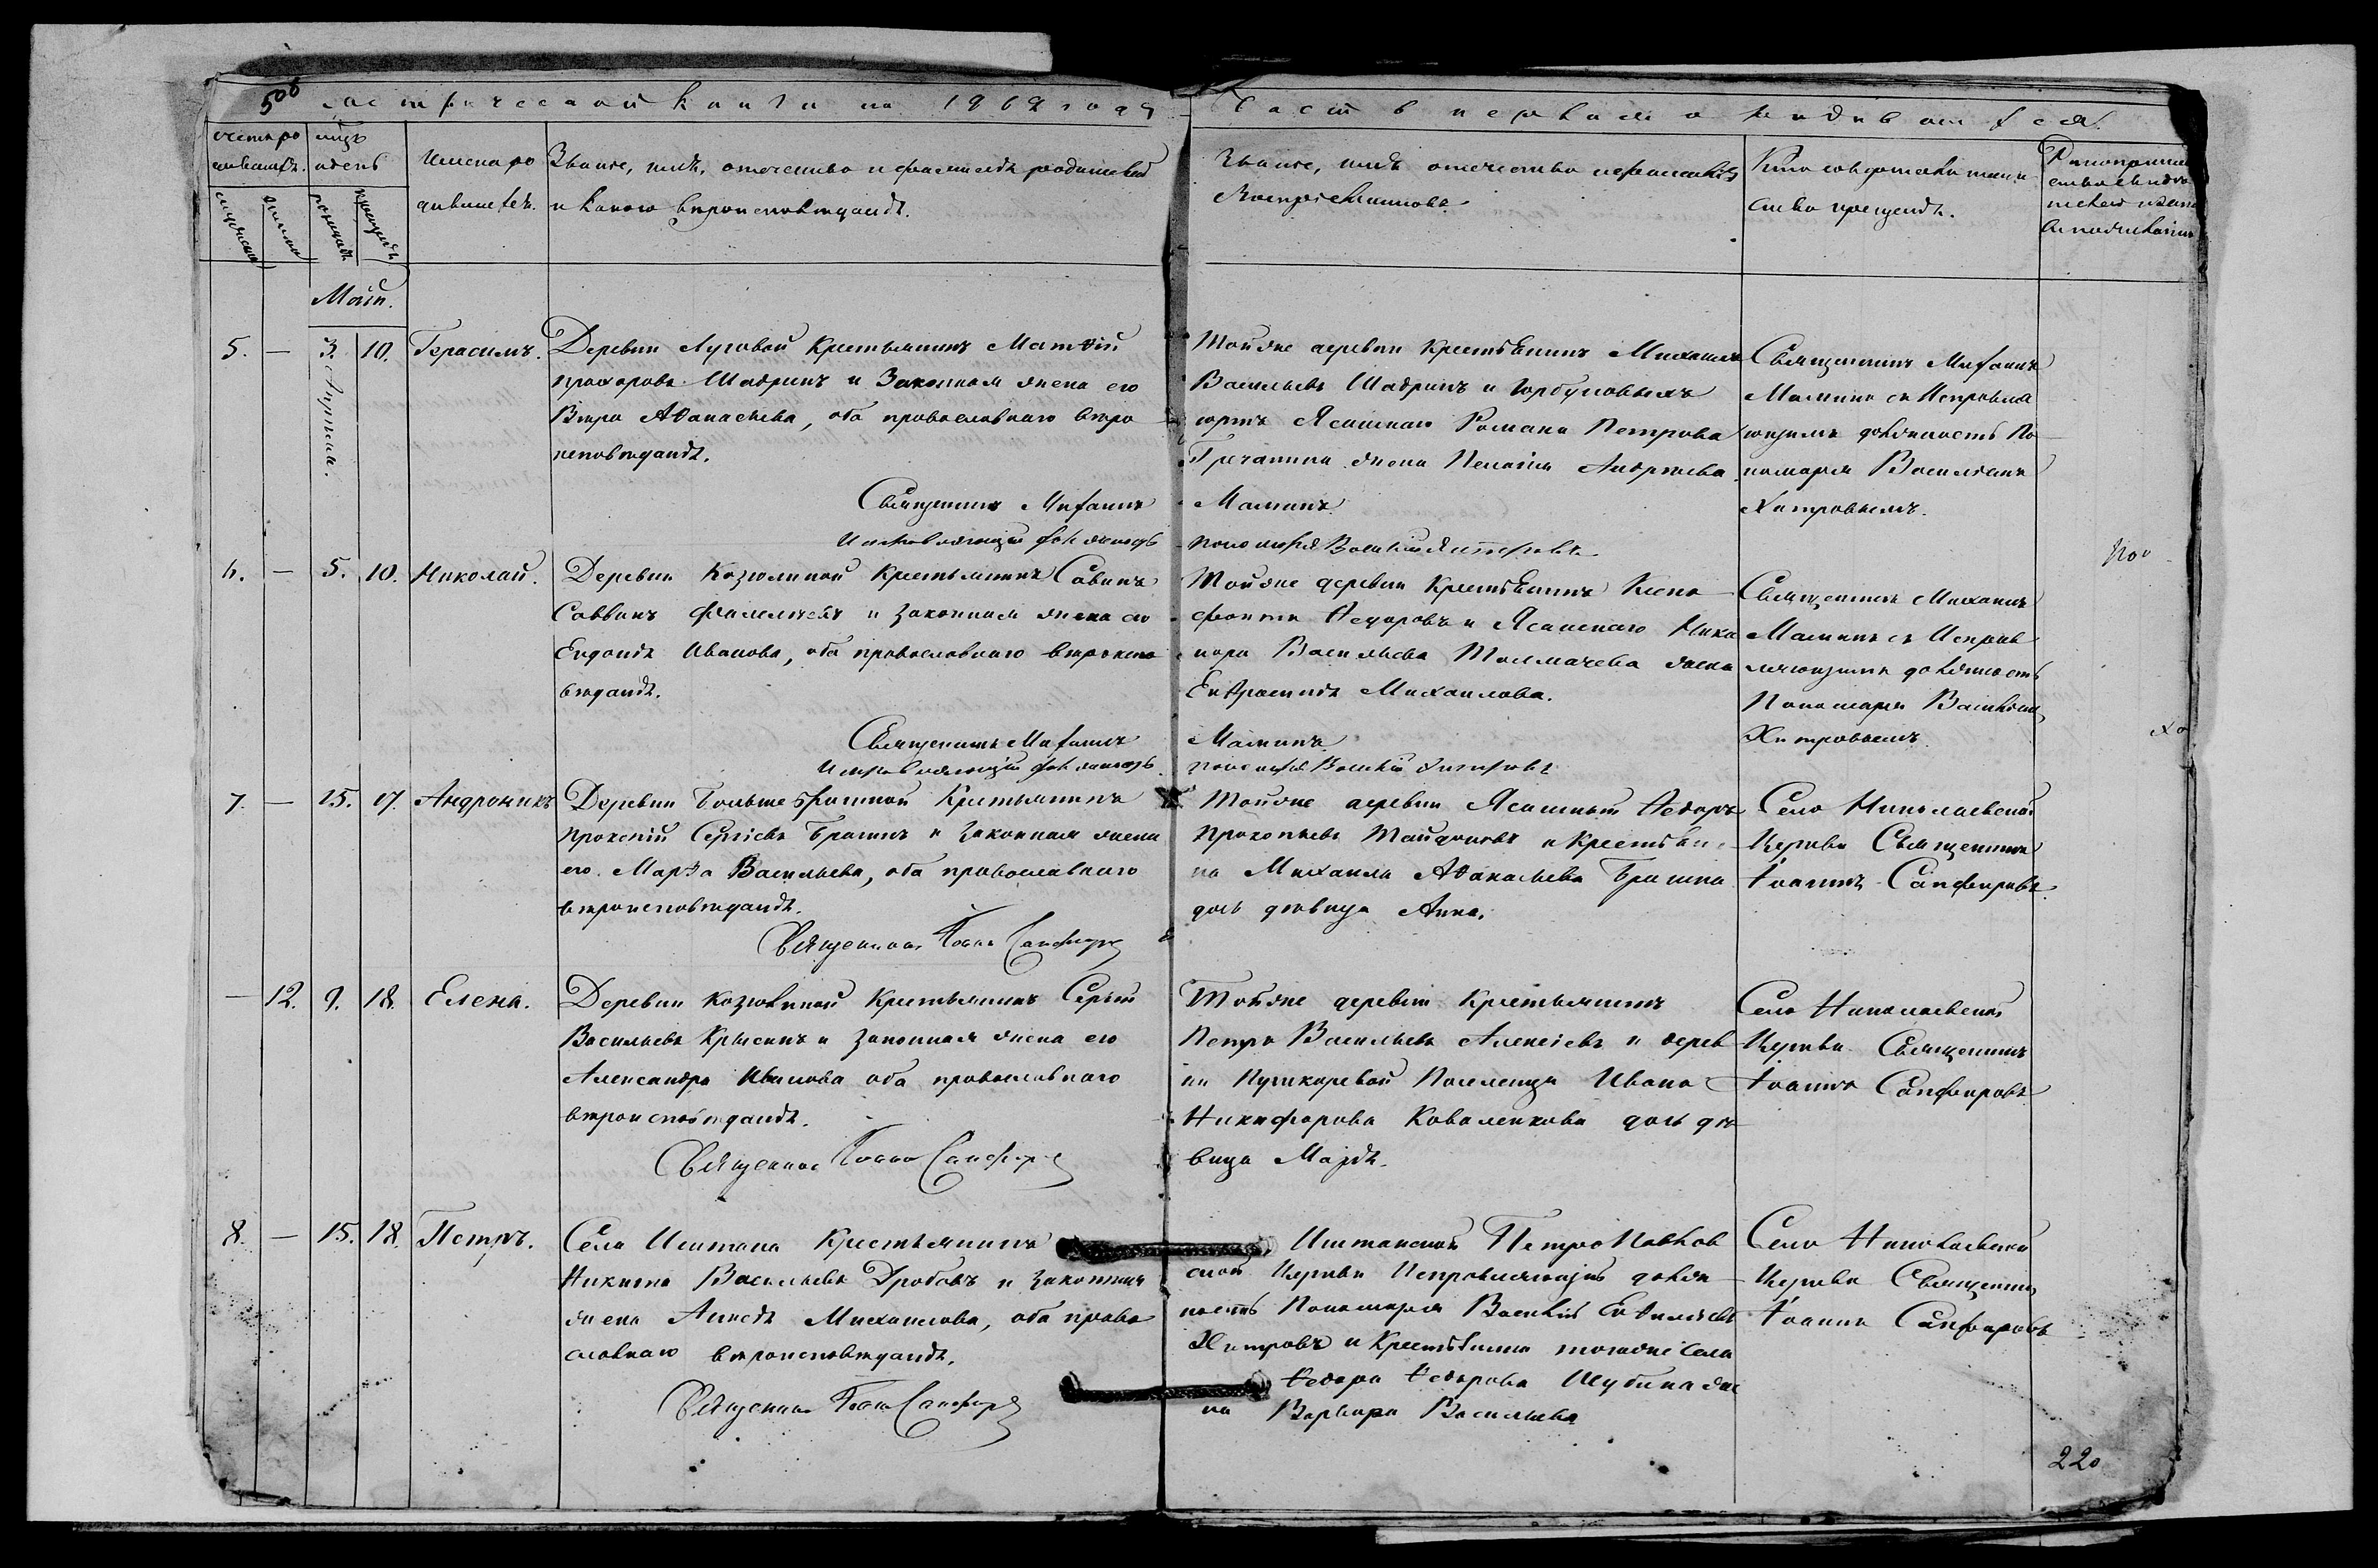 500
метрической книги на 1862 года
Часть первая о родившихся.
Счетъ ро
дившихся.
Мѣсяцъ
и день
Имена ро
дившихся.
Званіе, имя, отечество и фамилія родителей
и какого вѣроисповѣданія.
Званіе, имя отечество и фамилія
Воспріемниковъ.
Кто совершалъ таин
ство крещенія.
Рукоприклад
ство свидѣ
телей
рожденія
крещенія
Маій.
5. — 3. 10. Герасимъ.
Апреля.
Деревни Луговой Крестьянинъ Матѳій
Прохоровъ Шадринъ и Законная жена его
Вѣра Аѳанасьева, оба православнаго вѣро
исповѣданія.
Священникъ Михаилъ
Исправляющій должность
Тойже деревни Крестьянинъ Михаилъ
Васильевъ Шадринъ и Горбуновыхъ
юртъ Ясашнаго Романа Петрова
Гречанина жена Пелагія Андреева.
Маминъ
пономаря Василій Хитровъ
Священникъ Михаилъ
Маминъ съ Исправля
ющимъ должность По
номаря Василіемъ
Хитровымъ.
6. — 5. 10. Николай.
Деревни Козюлиной Крестьянинъ Савинъ
Саввинъ и законная жена его
Евдокія Иванова, оба православнаго вѣроиспо
вѣданія.
Священникъ Михаилъ
Исправляющій должность
Тойже деревни Крестьянинъ Ксено
фонтъ Ѳедоровъ и Ясашнаго Ника
нора Васильева Толмачева жена
Евфросинія Михаилова.
Маминъ
пономаря Василій Хитровъ
Священникъ Михаилъ
Маминъ съ Исправ
ляющимъ должность
Пономаря Василіемъ
Хитровымъ.
7. — 15. 17. Андроникъ
Деревни Больше Крестьянинъ
Прокопій Сергіевъ Брагинъ и законная жена
его Марѳа Васильева, оба православнаго
вѣроисповѣданія.
Священникъ Іоаннъ Сапфировъ
Тойже деревни Ясашный Ѳедоръ
Прокопьевъ и Крестьяни
на Михаила Аѳанасьева Брагина
дочь дѣвица Анна.
Село Николаевской
Церкви Священникъ
Іоаннъ Сапфировъ.
— 12. 9. 18. Елена.
Деревни Козюлиной Крестьянинъ Сергій
Васильевъ Крысинъ и законная жена его
Александра Иванова оба православнаго
вѣроисповѣданія.
Священникъ Іоаннъ Сапфировъ
Тойже деревни Крестьянинъ
Петръ Васильевъ Алексіевъ и дерев
ни Пушкаревой Поселенца Ивана
Никифорова Коваленкова дочь дѣ
вица Марѳа.
Село Николаевской
Церкви Священникъ
Іоаннъ Сапфировъ
8. — 15. 18. Петръ.
Села Иштана Крестьянинъ
Никита Васильевъ Дробовъ и законная
жена Анисія Михаилова, оба право
славнаго вѣроисповѣданія.
Священникъ Іоаннъ Сапфировъ
Иштанской Петропавлов
ской Церкви Исправляющій долж
ность Пономаря Василій Евѳиміевъ
Хитровъ и Крестьянина тогоже села
Ѳедора Ѳедорова Шубина же
на Варвара Васильева
Село Николаевской
Церкви Священникъ
Іоаннъ Сапфировъ
220